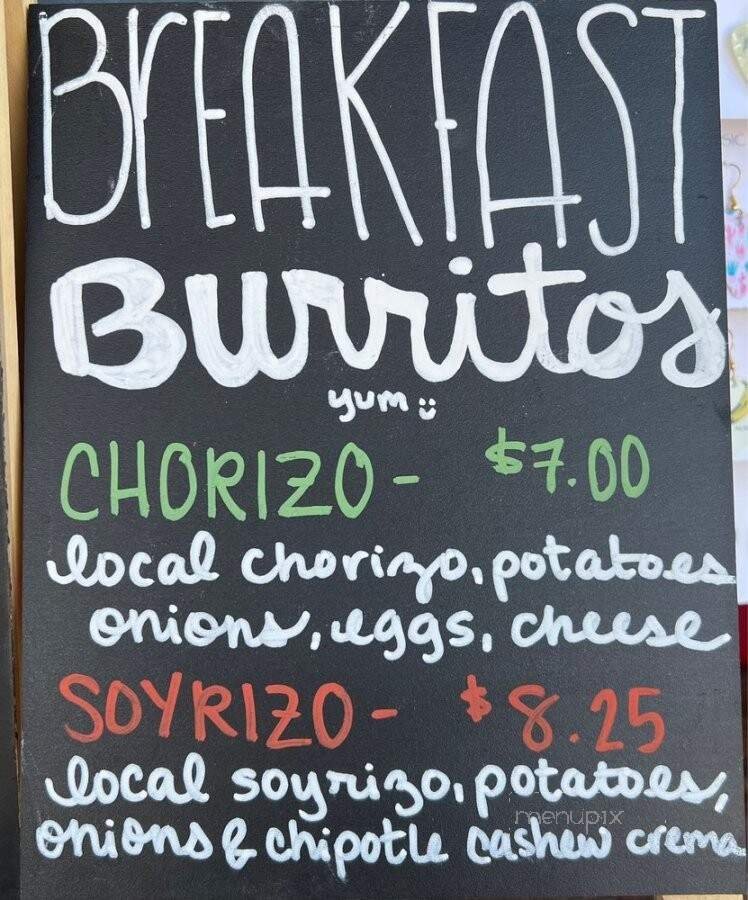 BREAKFAST
Burritos
yum
CHORIZO - $7.00
local chorizo, potatoes
onions, eggs, cheese
SOYRIZO - $8.25
local soyrizo, potatoes,
menupix
onions & chipotle cashew crema